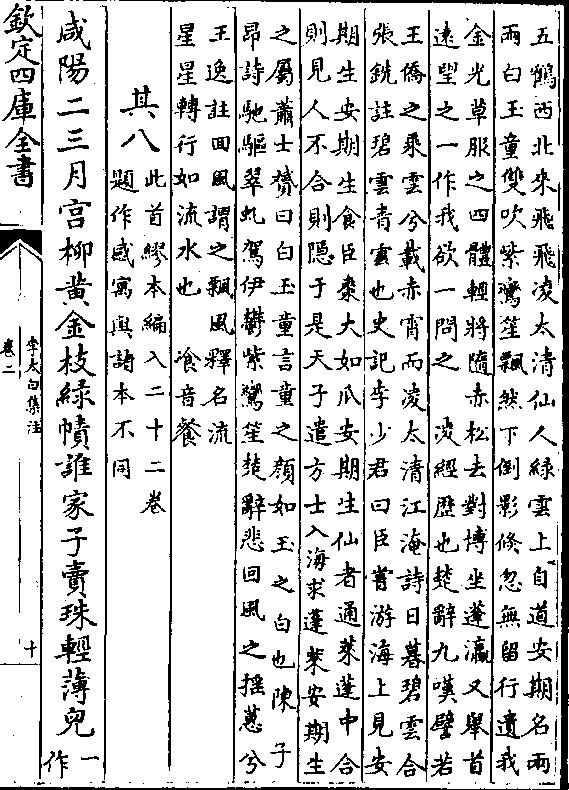 五鶴西北來飛飛凌太清仙人綠雲上自道安期名兩
兩白玉童雙吹紫鸞笙飄然下倒影倏忽無留行遺我
金光草服之四體輕將隨赤松去對博坐蓬瀛又舉首
遠望之一作我欲一問之　凌經歷也楚辭九嘆譬若
王僑之乘雲兮載赤霄而凌太清江淹詩日暮碧雲合
張銑註碧雲青雲也史記李少君曰臣嘗游海上見安
期生安期生食臣棗大如瓜安期生仙者通萊蓬中合
則見人不合則隱于是天子遣方士入海求蓬萊安期生
之屬蕭士贇曰白玉童言童之顏如玉之白也陳子
昂詩馳驅翠虬駕伊鬱紫鸞笙楚辭悲回風之摇蕙兮
王逸註回風謂之飄風釋名流
星星轉行如流水也　飡音餐
其八
此首繆本編入二十二卷
題作感寓與諸本不同
咸陽二三月宮柳黄金枝綠幘誰家子賣珠輕薄兒
一
作
欽定四庫全書
李太白集注
卷二
十